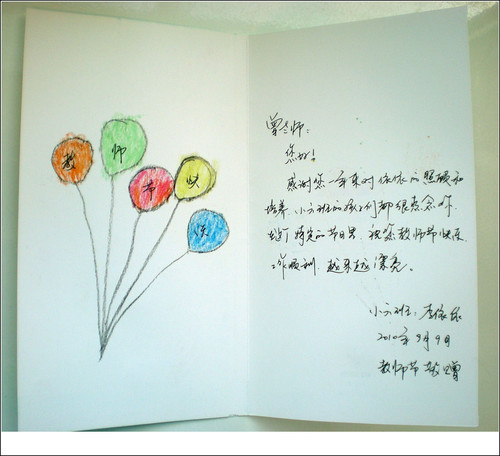 教
师
节
快
乐
曾老师:
您好!
感谢您一年来对依依的照顾和
培养.小六班的孩子们都很想念你.
在这个特定的节日里.祝您教师节快乐.
工作顺利.越来越漂亮。
小六班:李依依
2010年9月9日
教师节敬赠